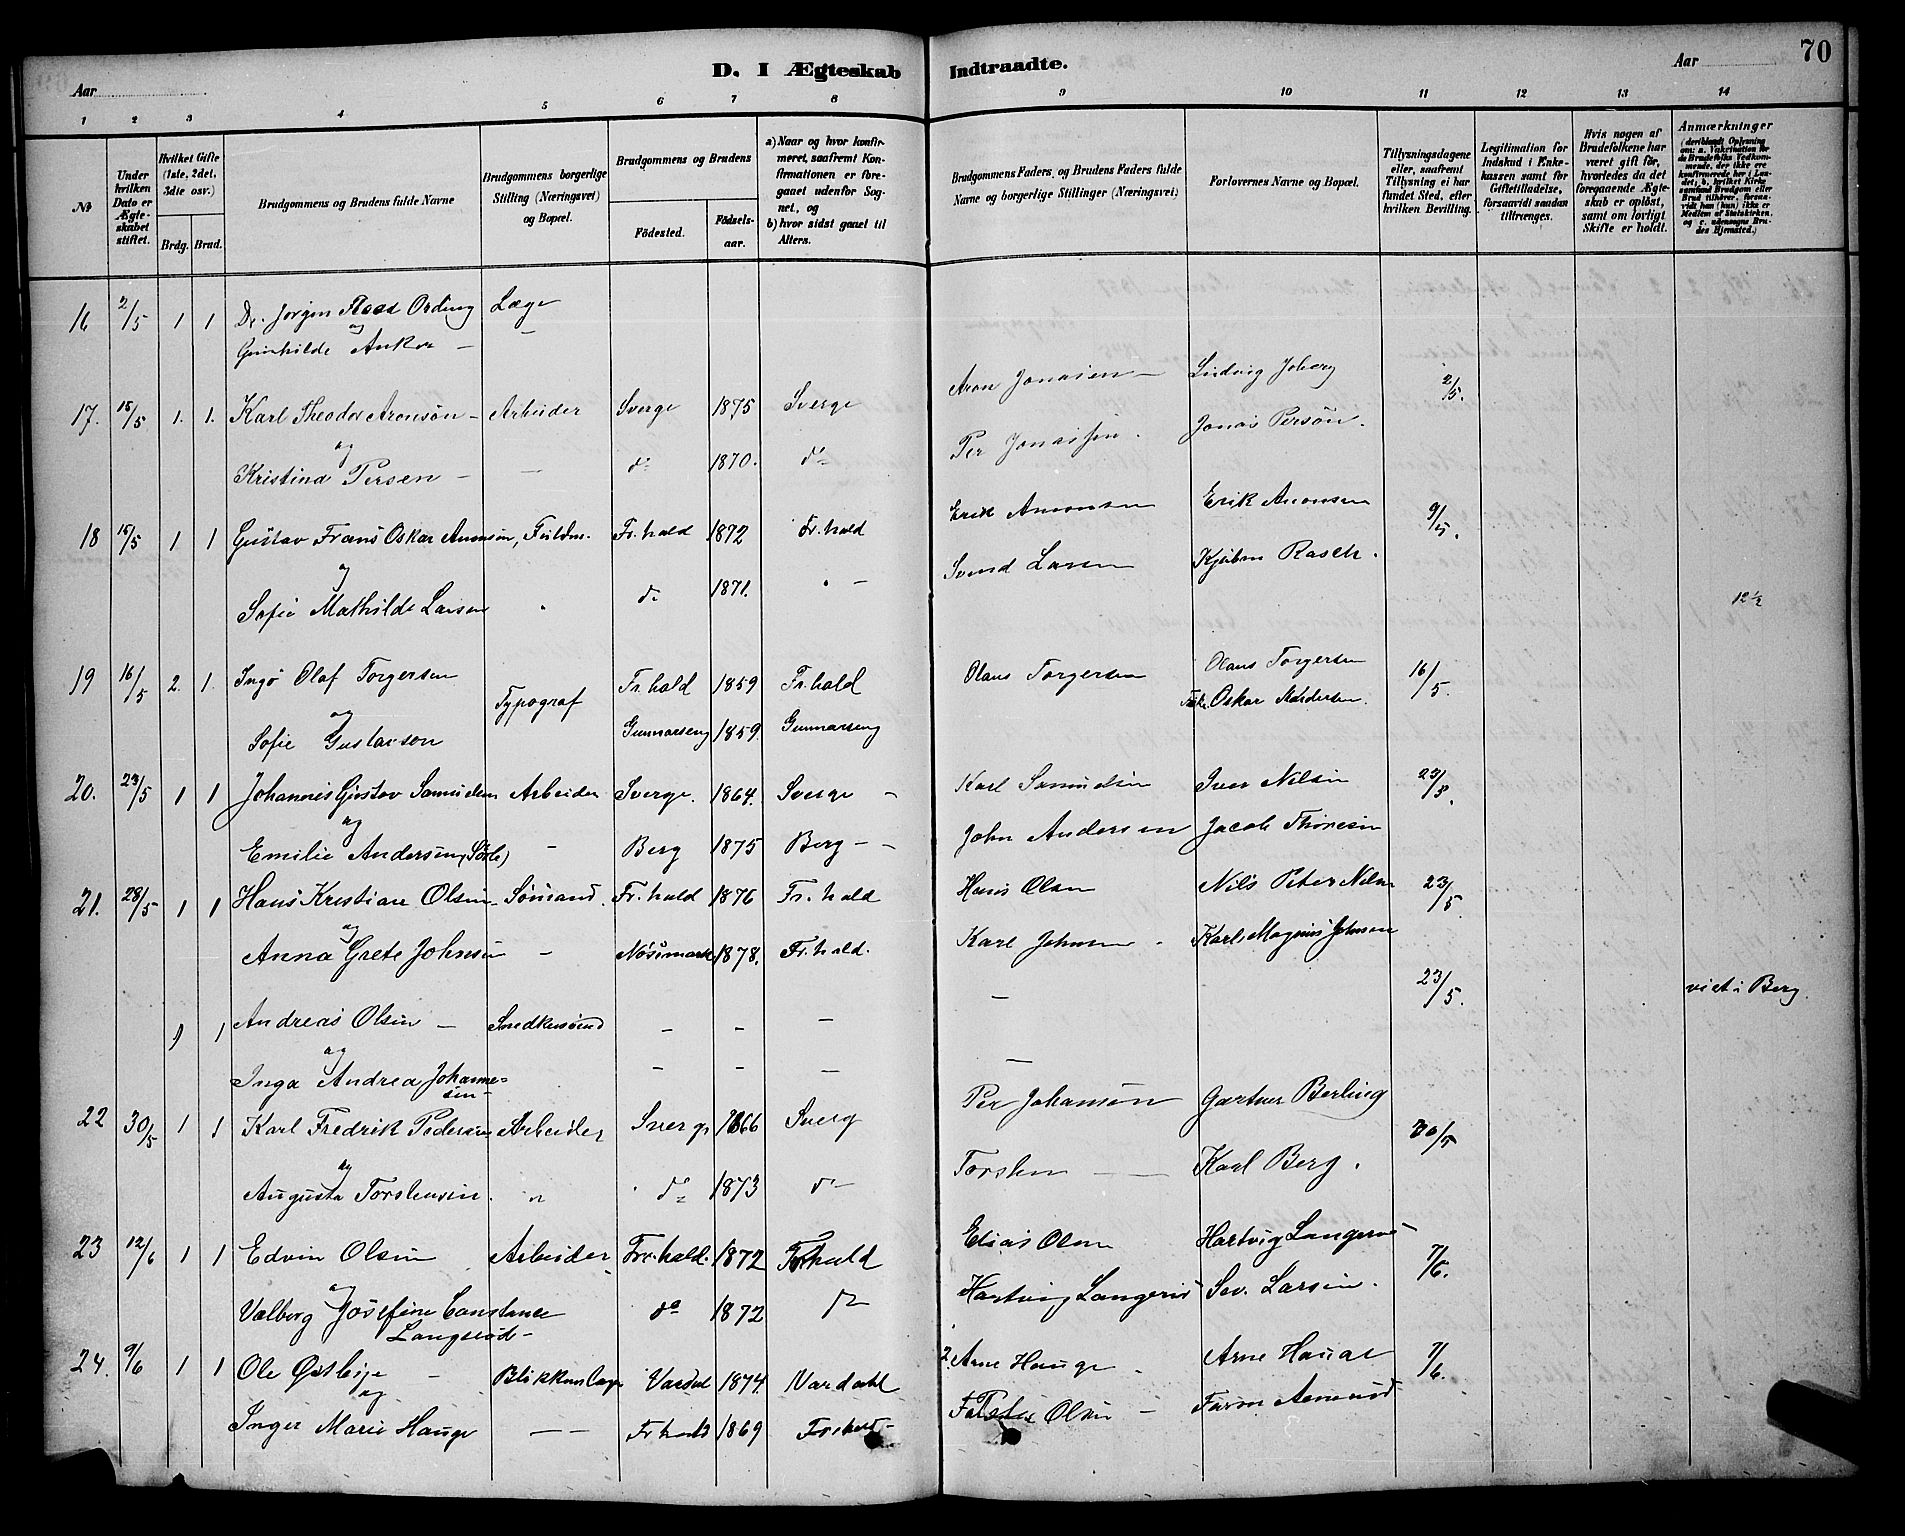 D. I Ægteskab Indtraadte.
70
Aar
Aar
1 2 3 4 5 6 7 8 9 10 11 12 13 14
№
Under hvilken Dato er Ægteskabet stiftet.
Hvilket Gifte (1ste, 2det, 3die osv.)
Brdg. Brud.
Brudgommens og Brudens fulde Navne
Brudgommens borgerlige Stilling (Næringsvei) og Bopæl.
Brudgommens og Brudens
Födested.
Födselsaar.
a) Naar og hvor konfirmeret, saafremt Konfirmationen er foregaaet udenfor Sognet, og
b) hvor sidst gaaet til Alters.
Brudgommens Faders og Brudens Faders fulde Navne og borgerlige Stillinger (Næringsvei)
Forlovernes Navne og Bopæl.
Tillysningsdagene eller, saafremt Tillysning ei har fundet Sted, efter hvilken Bevilling.
Legitimation for Indskud i Enkekassen samt for Giftetilladelse, forsaavidt saadan tiltrænges.
Hvis nogen af Brudefolkene har været gift før, hvorledes da det foregaaende Ægteskab er oplöst, samt om lovligt Skifte er holdt.
Anmærkninger
16 2/5 1 1 Dr. Jørgen Ording Læge
og
Gunhilde Anker — —
17. 15/5 1. 1. Karl Theodor Aronsøn - Arbeider Sverge 1875 Sverge Aron Jonasen — Ludvig 2/5.
og
Kristina Persen — — do 1870. do Per Jonassen. Jonas Persøn.
18 15/5 1 1 Gustav Frans Oskar Fr.hald 1872 Fr.hald Erik Erik 9/5.
og
Sofie Mathilde Larsen do 1871. — Svend Larsen Kjøbm Rasch.
12½
19 16/5 2. 1. Ingv Olaf Torgersen Typograf Fr.hald 1859 Fr.hald Olaus Torgersen Olaus Torgersen 16/5.
og
Sofie Gustavson Gunnarseng 1859. Gunnarseng Oskar Andersen.
20. 23/5 1 1 Johannes Gustav Samuelsen Arbeider Sverge. 1864. Sverge — Karl Samuelsen Iver Nilsen
og
Emilie Andersen (Sørle) — Berg 1875 Berg — — John Andersen Jacob Thoresen
21. 28/5 1 1 Hans Kristian Olsen Sømand. Fr.hald 1876 Fr.hald Hans Olsen Nils Peter Nilsen 23/5.
og
Anna Grete Johnsen — 1878. Fr.hald. Karl Johnsen - Karl Magnus Johnsen
1 1 Andreas Olsen — Snedkersvend — — — — 23/5. viet i Berg.
og
Inga Andrea Johannesen — — — —
22 30/5 1 1 Karl Fredrik Pedersen Arbeider Sverg 1866 Sverg Per Johansøn Gartner Berling 30/5
og
Augusta Torstensen. " do 1873 do Torsten — Karl Berg.
23 12/6 1 1 Edvin Olsen Arbeider Fr.hald. 1872 Fr.hald Elias Olsen Hartvig 7/6.
og
Valborg Josefine Constance do 1872 do Hartvig Sev. Larsen.
24. 9/6 1 1 Ole Østbye — Blikkenslager 1874. Vardahl Arne Hauge - Arne Hauge 7/6.
og
Inger Marie Hauge — — Fr.hald 1869 Fr.hald — Olsen —